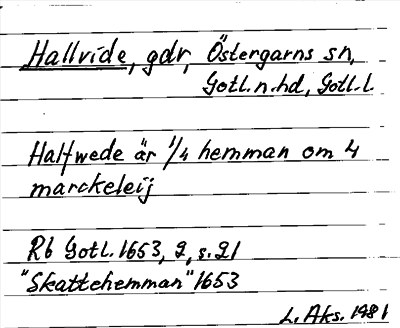 Hallvide, gdr, Östergarns sn,
Gotl.n.hd, Gotl.l.
Halfwede är 1/4 hemman om 4
marckeleij
Rb Gotl. 1653, 2, s. 21
"Skattehemman" 1653
L. Aks. 1981